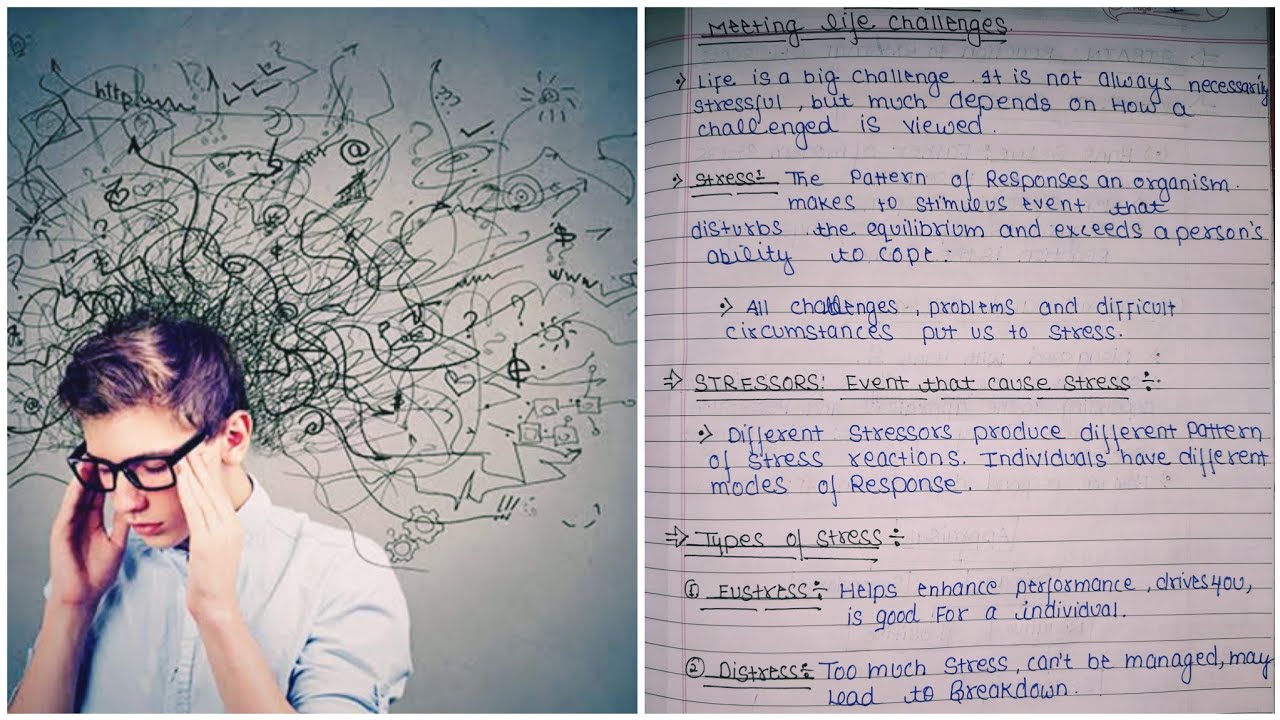 http
@
$
www
Meeting life challenges.
Life is a big challenge. It is not always necessarily
stressful, but much depends on How a
challenged is viewed.
Stress: The Pattern of Responses an organism.
makes to stimulus event that
disturbs the equilibrium and exceeds a person's
ability to cope.
All challenges, problems and difficult
circumstances put us to stress.
⇒ STRESSORS: Event that cause stress ÷
Different stressors produce different pattern
of stress reactions. Individuals have different
modes of Response.
⇒ Types of stress ÷
① Eustress ÷ Helps enhance performance, drives you,
is good For a individual.
② Distress ÷ Too much stress, can't be managed, may
lead to Breakdown.